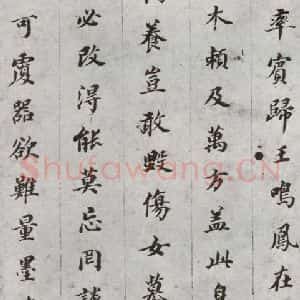 率賓歸王鳴鳳在
木賴及萬方盖此
養豈敢毀傷女慕
必改得能莫忘罔談
可覆器欲難量墨
Shufawang.CN